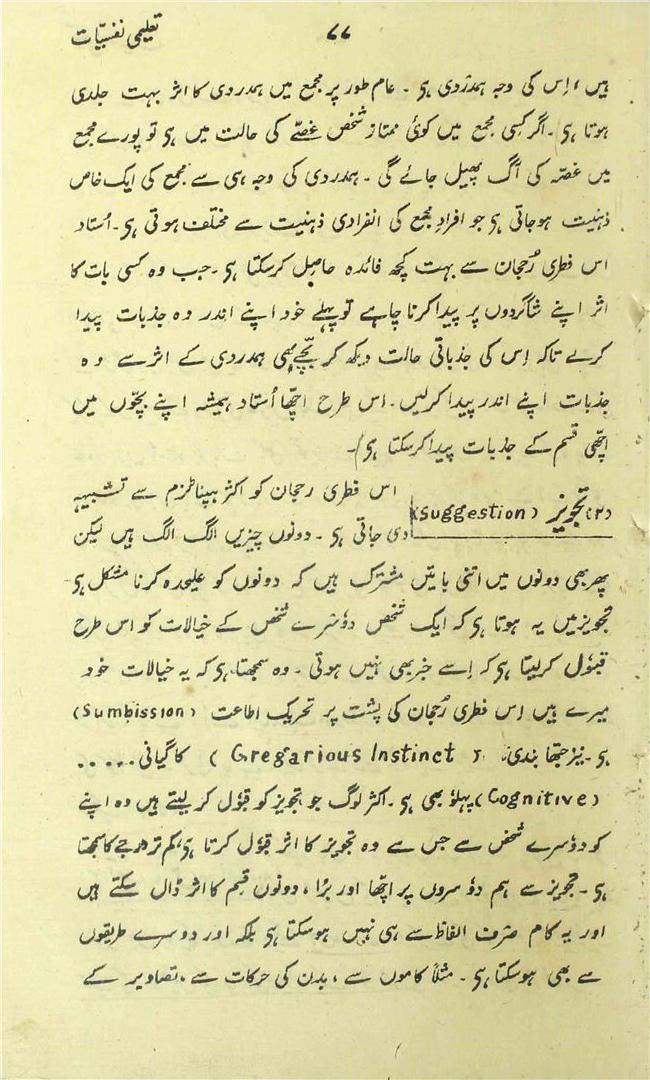 تعلیمی نفسیّات ۷۷
ہیں، اِس کی وجہ ہمدردی ہی ۔ عام طور پر مجمع میں ہمدردی کا اثر بہت جلدی
ہوتا ہی ۔ اگر کسی مجمع میں کوئی ممتاز شخص غصّے کی حالت میں ہی تو پورے مجمع
میں غصّہ کی آگ پھیل جائے گی ۔ ہمدردی کی وجہ ہی سے مجمع کی ایک خاص
ذہنیت ہوجاتی ہی جو افرادِ مجمع کی انفرادی ذہنیت سے مختلف ہوتی ہی ۔ اُستاد
اس فطری رُجحان سے بہت کچھ فائدہ حاصل کرسکتا ہی ۔ جب وہ کسی بات کا
اثر اپنے شاگردوں پر پیدا کرنا چاہے تو پہلے خود اپنے اندر وہ جذبات پیدا
کرے تاکہ اِس کی جذباتی حالت دیکھ کر بچّے بھی ہمدردی کے اثر سے وہ
جذبات اپنے اندر پیدا کرلیں ۔ اس طرح اچھّا اُستاد ہمیشہ اپنے بچّوں میں
اچھّی قسم کے جذبات پیدا کرسکتا ہی ۔
(۲) تجویز (Suggestion) اس فطری رجحان کو اکثر ہپناٹزم سے تشبیہہ
دی جاتی ہی ۔ دونوں چیزیں الگ الگ ہیں لیکن
پھر بھی دونوں میں اتنی باتیں مشترک ہیں کہ دونوں کو علیحدہ کرنا مشکل ہی
تجویز میں یہ ہوتا ہی کہ ایک شخص دوٗسرے شخص کے خیالات کو اس طرح
قبوٗل کرلیتا ہی کہ اِسے خبر بھی نہیں ہوتی ۔ وہ سمجھتا ہی کہ یہ خیالات خود
میرے ہیں اِس فطری رُجحان کی پشت پر تحریک اطاعت (Sumbission)
ہی ۔ نیز جتھا بندی (Gregarious Instinct) کا گیانی .....
(Cognitive) پہلوٗ بھی ہی ۔ اکثر لوگ جو تجویز کو قبوٗل کرلیتے ہیں وہ اپنے
کو دوٗسرے شخص سے جس سے وہ تجویز کا اثر قبوٗل کرتا ہی کم تر درجے کا سمجھتا
ہی ۔ تجویز سے ہم دوٗسروں پر اچھّا اور بُرا، دونوں قِسم کا اثر ڈال سکتے ہیں
اور یہ کام صرف الفاظ سے ہی نہیں ہوسکتا ہی بلکہ اور دوسرے طریقوں
سے بھی ہوسکتا ہی ۔ مثلاً کاموں سے، بدن کی حرکات سے، تصاویر کے